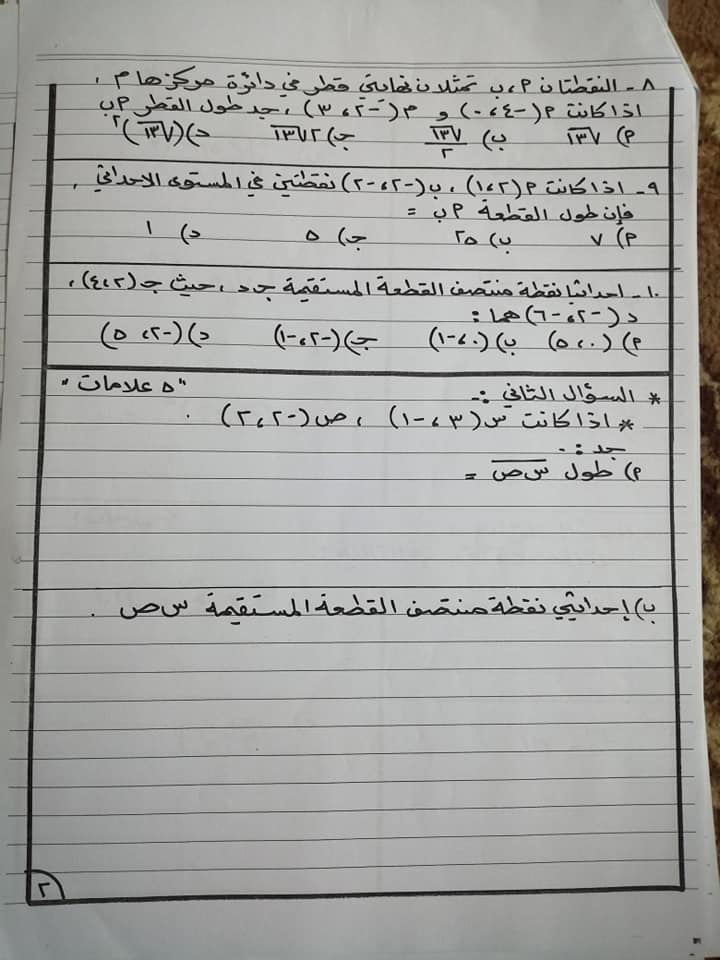 ٨- النقطتان م، ب تمثلان نهايتي قطر في دائرة مركزها م،
اذا كانت م(-٤، ٠) و م(-٢، ٣)، جد طول القطر م ب
م) √١٣ ب) √١٣/٢ جـ) ٢√١٣ د) (√١٣)٢
٩- اذا كانت م(١،٢)، ب(-٢،-٢) نقطتين في المستوى الاحداثي،
فإن طول القطعة م ب =
م) ٧ ب) ٢٥ جـ) ٥ د) ١
١٠- احداثيا نقطة منتصف القطعة المستقيمة جـ د، حيث جـ(٤،٢)،
د(-٢،-٦) هما:
م) (٥،٠) ب) (٠،-١) جـ) (-٢،-١) د) (-٢، ٥)
* السؤال الثاني :- "٥ علامات"
* اذا كانت س(٣،-١)، ص(-٢،٢).
جد :.
م) طول س ص =
ب) إحداثيي نقطة منتصف القطعة المستقيمة س ص.
٢